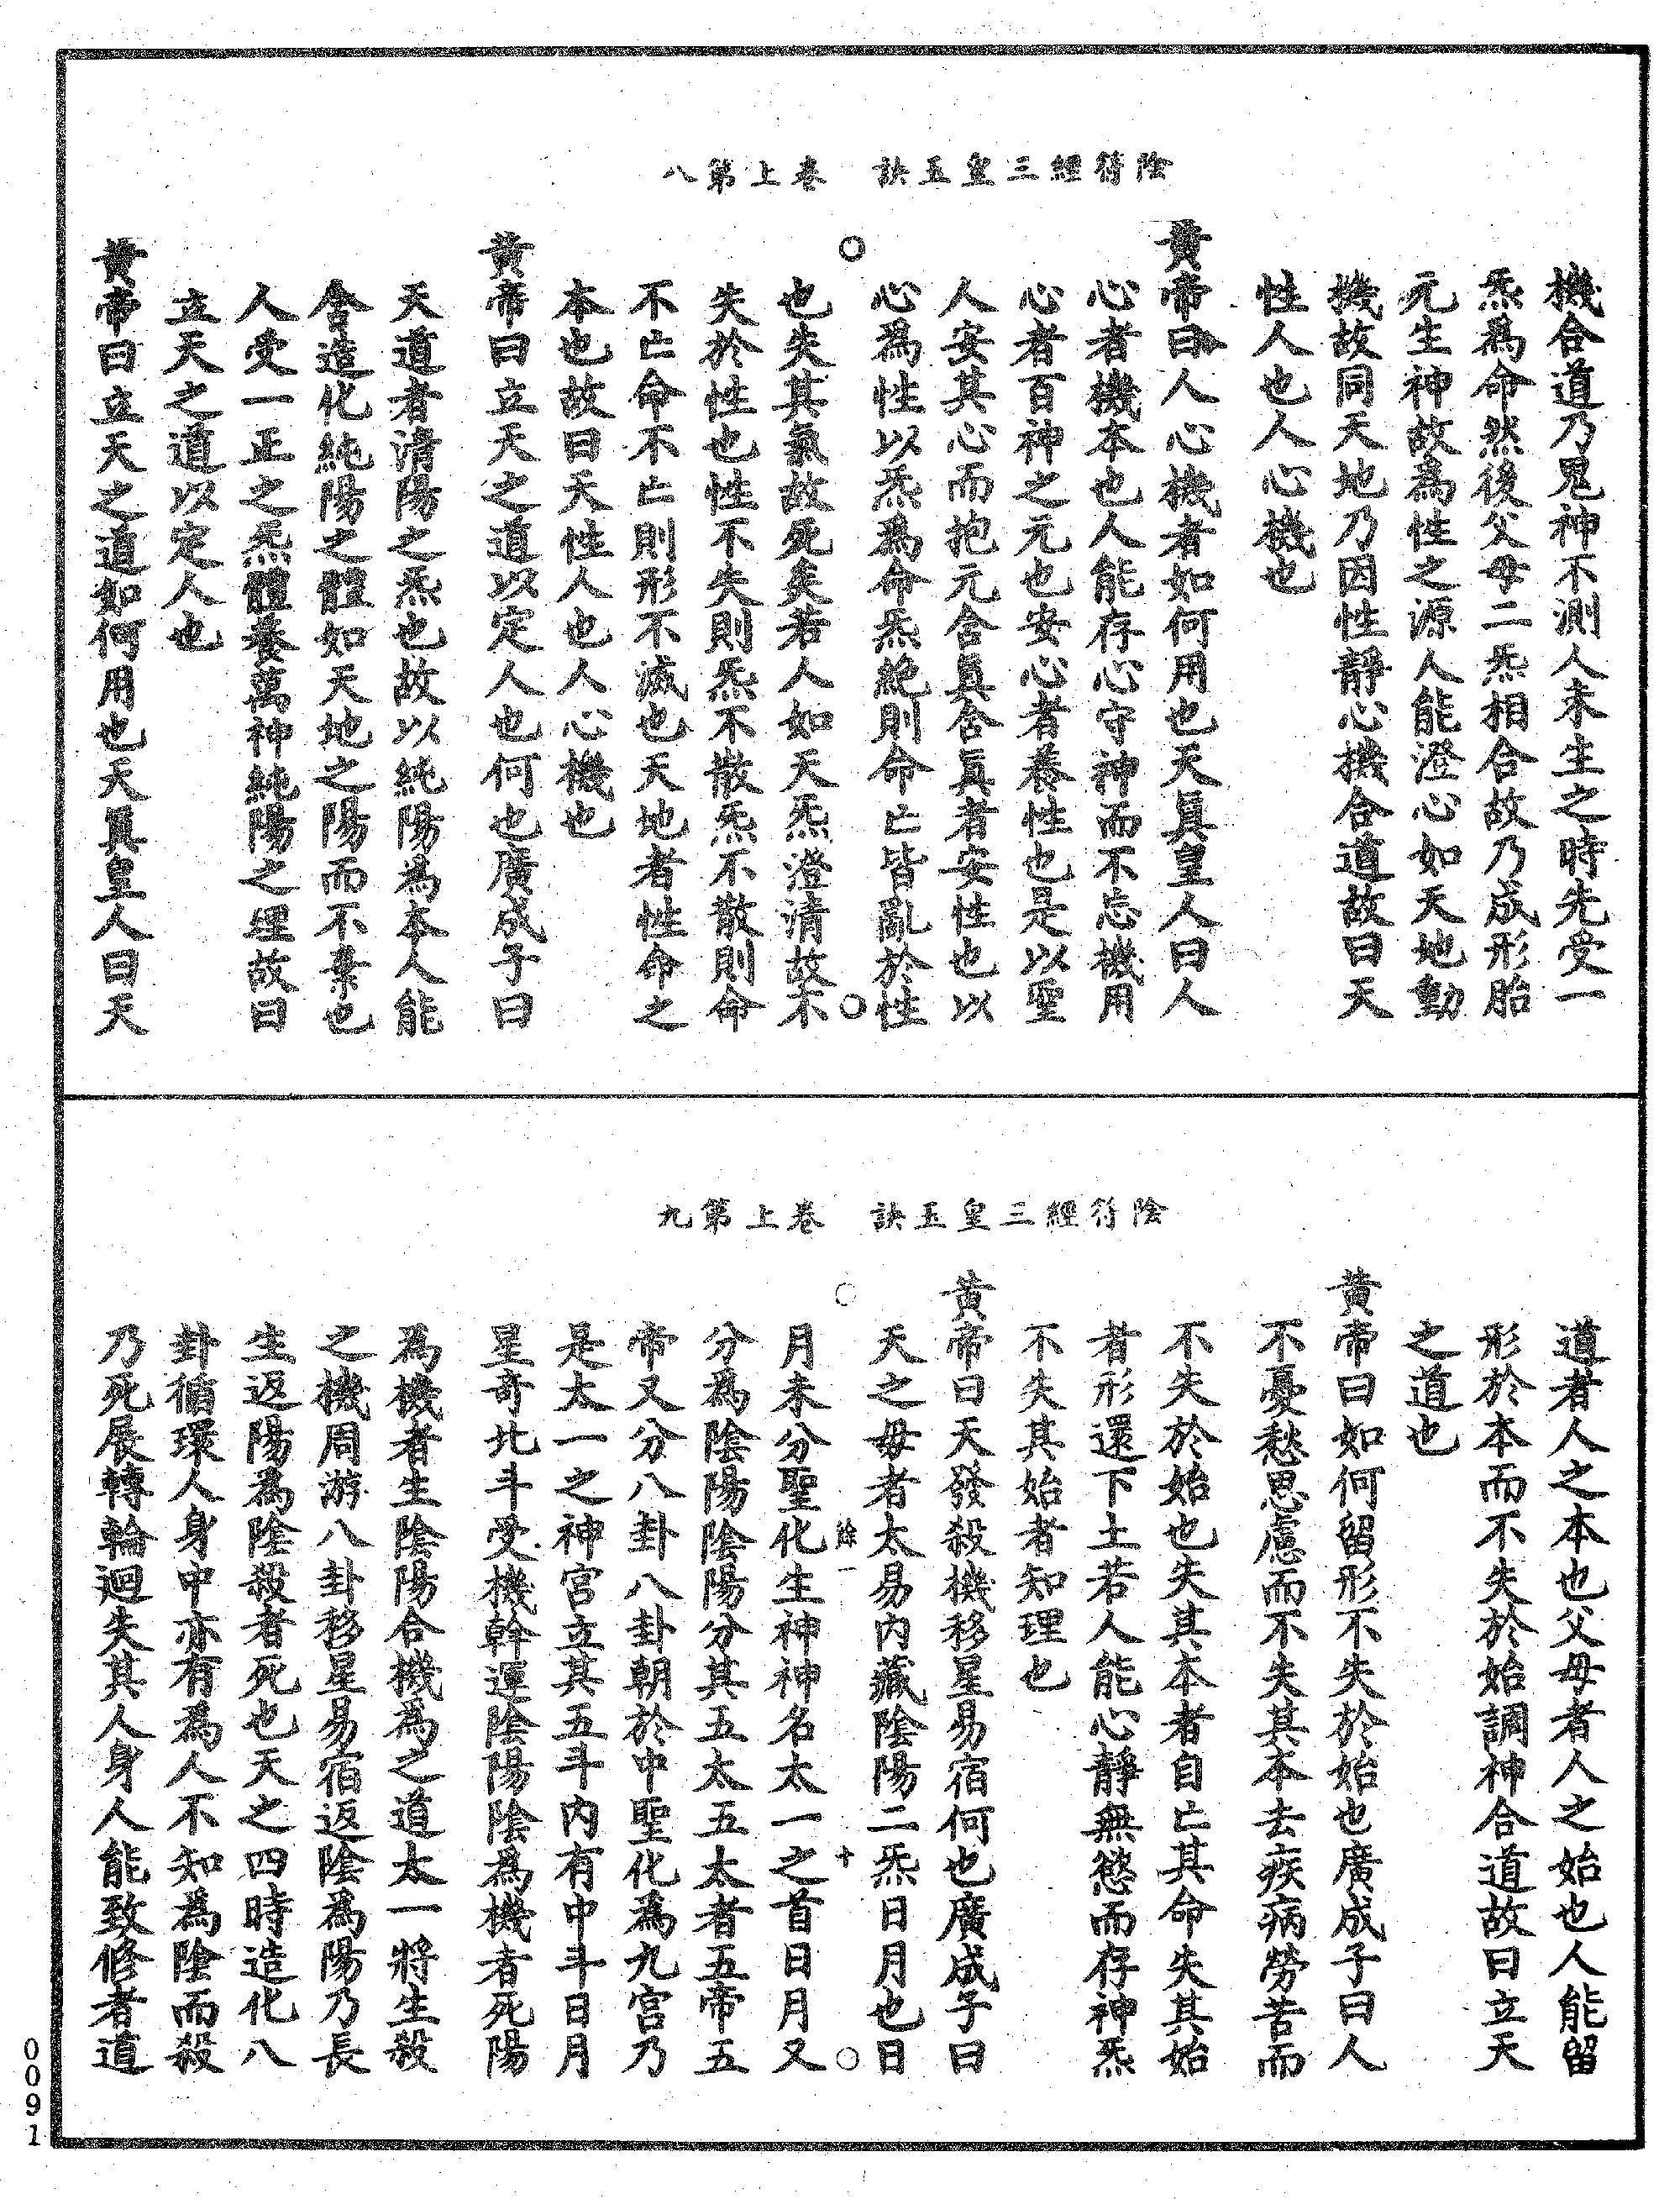 陰符經三皇玉訣　卷上第八
機合道乃鬼神不測人未生之時先受一
炁爲命然後父母二炁相合故乃成形胎
元生神故爲性之源人能澄心如天地動
機故同天地乃因性靜心機合道故曰天
性人也人心機也
黃帝曰人心機者如何用也天真皇人曰人
心者機本也人能存心守神而不忘機用
心者百神之元也安心者養性也是以聖
人安其心而抱元含真含真者安性也以
心爲性以炁爲命炁絕則命亡皆亂於性
也失其氣故死矣若人如天炁澄清故不
失於性也性不失則炁不散炁不散則命
不亡命不亡則形不滅也天地者性命之
本也故曰天性人也人心機也
黃帝曰立天之道以定人也何也廣成子曰
天道者清陽之炁也故以純陽爲本人能
含造化純陽之體如天地之陽而不棄也
人受一正之炁體養萬神純陽之理故曰
立天之道以定人也
黃帝曰立天之道如何用也天真皇人曰天
陰符經三皇玉訣　卷上第九
道者人之本也父母者人之始也人能留
形於本而不失於始調神合道故曰立天
之道也
黃帝曰如何留形不失於始也廣成子曰人
不憂愁思慮而不失其本去疾病勞苦而
不失於始也失其本者自亡其命失其始
者形還下土若人能心靜無慾而存神炁
不失其始者知理也
黃帝曰天發殺機移星易宿何也廣成子曰
天之母者太易內藏陰陽二炁日月也日
餘一　十
月未分聖化生神神名太一之首日月又
分爲陰陽陰陽分其五太五太者五帝五
帝又分八卦八卦朝於中聖化爲九宮乃
是太一之神宮立其五斗內有中斗日月
星奇北斗受機斡運陰陽陰爲機者死陽
爲機者生陰陽合機爲之道太一將生殺
之機周游八卦移星易宿返陰爲陽乃長
生返陽爲陰殺者死也天之四時造化八
卦循環人身中亦有爲人不知爲陰而殺
乃死展轉輪迴失其人身人能致修者道
0091